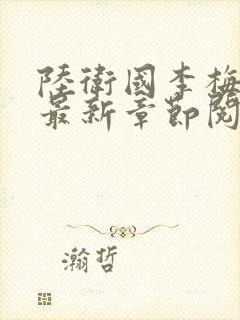 陸衛國李梅
最新章節閱
瀚哲